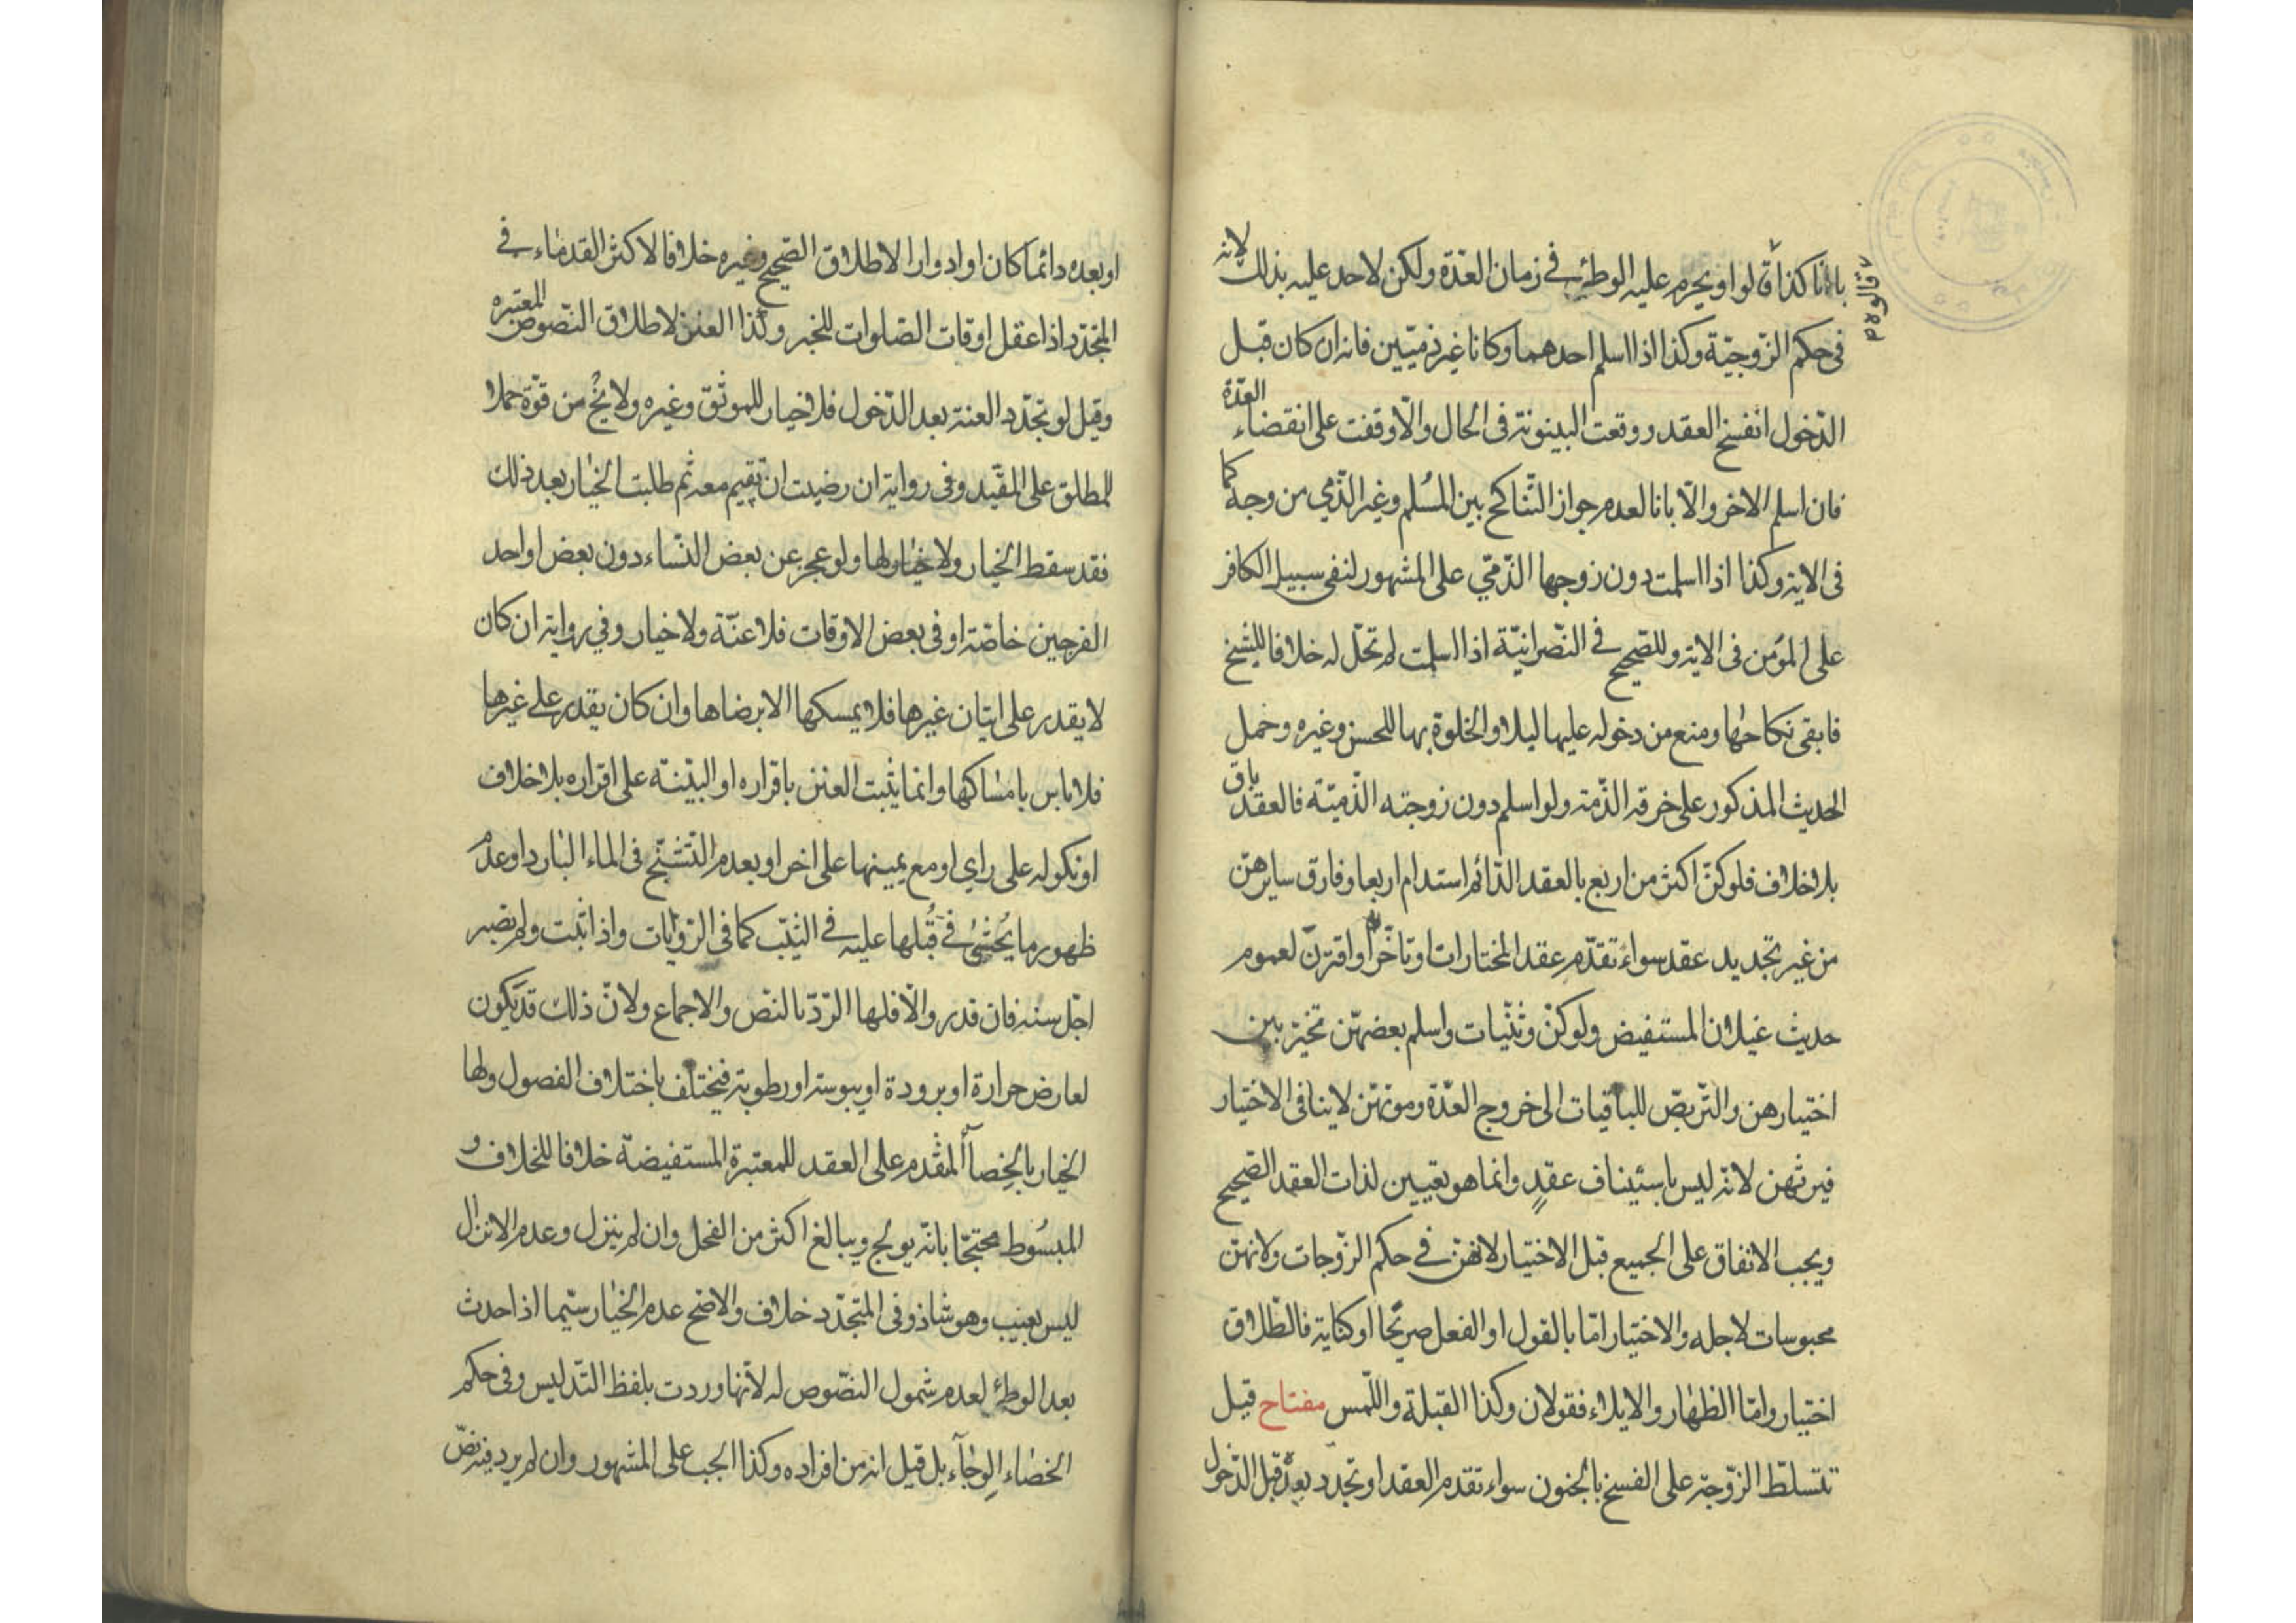 بانا كذا قالوا ويحرم عليه الوطئ في زمان العدّة ولكن لاحد عليه بذلك لانه
فى حكم الزّوجيّة وكذا اذا اسلم احدهما وكانا غير ذميّين فانه ان كان قبل
الدّخول انفسخ العقد ووقعت البينونة فى الحال والّا وقفت على انقضاء العدّة
فان اسلم الاخر والّا بانا لعدم جواز التّناكح بين المسُلم وغير الذّمي من وجه كما
فى الاية وكذا اذا اسلمت دون زوجها الذّمّي على المشهور لنفى سبيل الكافر
على المؤمن فى الاية وللصّحيح في النّصرانيّة اذا اسلمت لم تحلّ له خلافا للشيخ
فابقى نكاحها ومنع من دخوله عليها ليلا والخلوة بها للحسن وغيره وحمل
الحديث المذكور على خرقه الذّمة ولو اسلم دون زوجته الذّميّة فالعقد باق
بلا خلاف فلو كنّ اكثر من اربع بالعقد الدّائم استدام اربعا وفارق سايرهنّ
من غير تجديد عقد سواء تقدّم عقد المختارات او تاخّر او اقترن لعموم
حديث غيلان المستفيض ولو كنّ وثنّيات واسلم بعضهّن تخيّر بين
اختيارهن والتّربصّ للباقيات الى خروج العدّة وموتهنّ لاينافى الاختيار
فيرثهن لانّه ليس باستيناف عقدٍ وانما هو تعيين لذات العقد الصّحيح
ويجب الانفاق على الجميع قبل الاختيار لانهنّ في حكم الزّوجات ولانهنّ
محبوسات لاجله والاختيار امّا بالقول او الفعل صريحًا او كناية فالطّلاق
اختيار وامّا الظهار والايلاء فقولان وكذا القبلة واللّمس مفتاح قيل
تتسلّط الزّوجة على الفسخ بالجنون سواء تقدم العقد او تجدد بعده قبل الدّخول
او بعده دائما كان او ادوارا لاطلاق الصّحيح وغيره خلافا لاكثر القدماء في
المتجدّد اذا عقل اوقات الصّلوات للخبر وكذا العنن لاطلاق النّصوص المعتبره
وقيل لو تجدّد العنة بعد الدّخول فلا خيار للموثّق وغيره ولا يخ من قوّة حملا
للمطلق على المقيّد وفى رواية ان رضيت ان تقيم معه ثم طلبت الخيار بعد ذلك
فقد سقط الخيار ولا خيار لها ولو عجز عن بعض النّساء دون بعض او احد
الفرجين خاصّة او فى بعض الاوقات فلا عنّة ولا خيار وفي رواية ان كان
لا يقدر على اتيان غيرها فلا يمسكها الا برضاها وان كان يقدر على غيرها
فلا باس بامساكها وانما يثبت العنن باقراره او البيّنة على اقراره بلا خلاف
او نكوله على راي او مع يمينها على اخر او بعدم التّشنّج فى الماء البارد او عدم
ظهور ما يُحشىٰ في قُبُلها عليه في الثيّب كما فى الرّوايات واذا ثبت ولم تصبر
اجّل سنه فان قدر والّا فلها الرّدّ بالنّص والاجماع ولانّ ذلك قد يكون
لعارض حرارة او برودة او يبوسة او رطوبة فيختلف باختلاف الفصول ولها
الخيار بالخِصآأ المقدم على العقد للمعتبرة المستفيضة خلافا للخلاف و
المبسُوط محتجّا بانّه يولج ويبالغ اكثر من الفحل وان لم ينزل وعدم الانزال
ليس بعيب وهو شاذ وفى المتجدّد خلاف والاصّح عدم الخيار سيّما اذا حدث
بعد الوطئ لعدم شمول النصّوص له لانّها وردت بلفظ التّدليس وفى حكم
الخصاء الوِجآء بل قيل انه من افراده وكذا الجب على المشهور وان لم يرد فيه نصّ